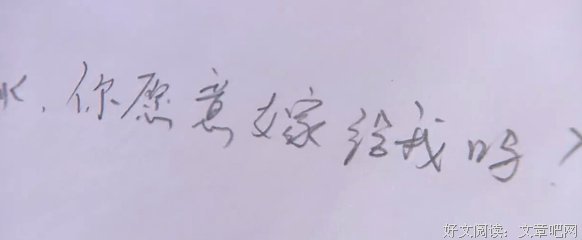 ,你愿意嫁给我吗?
好文阅读:文章吧网